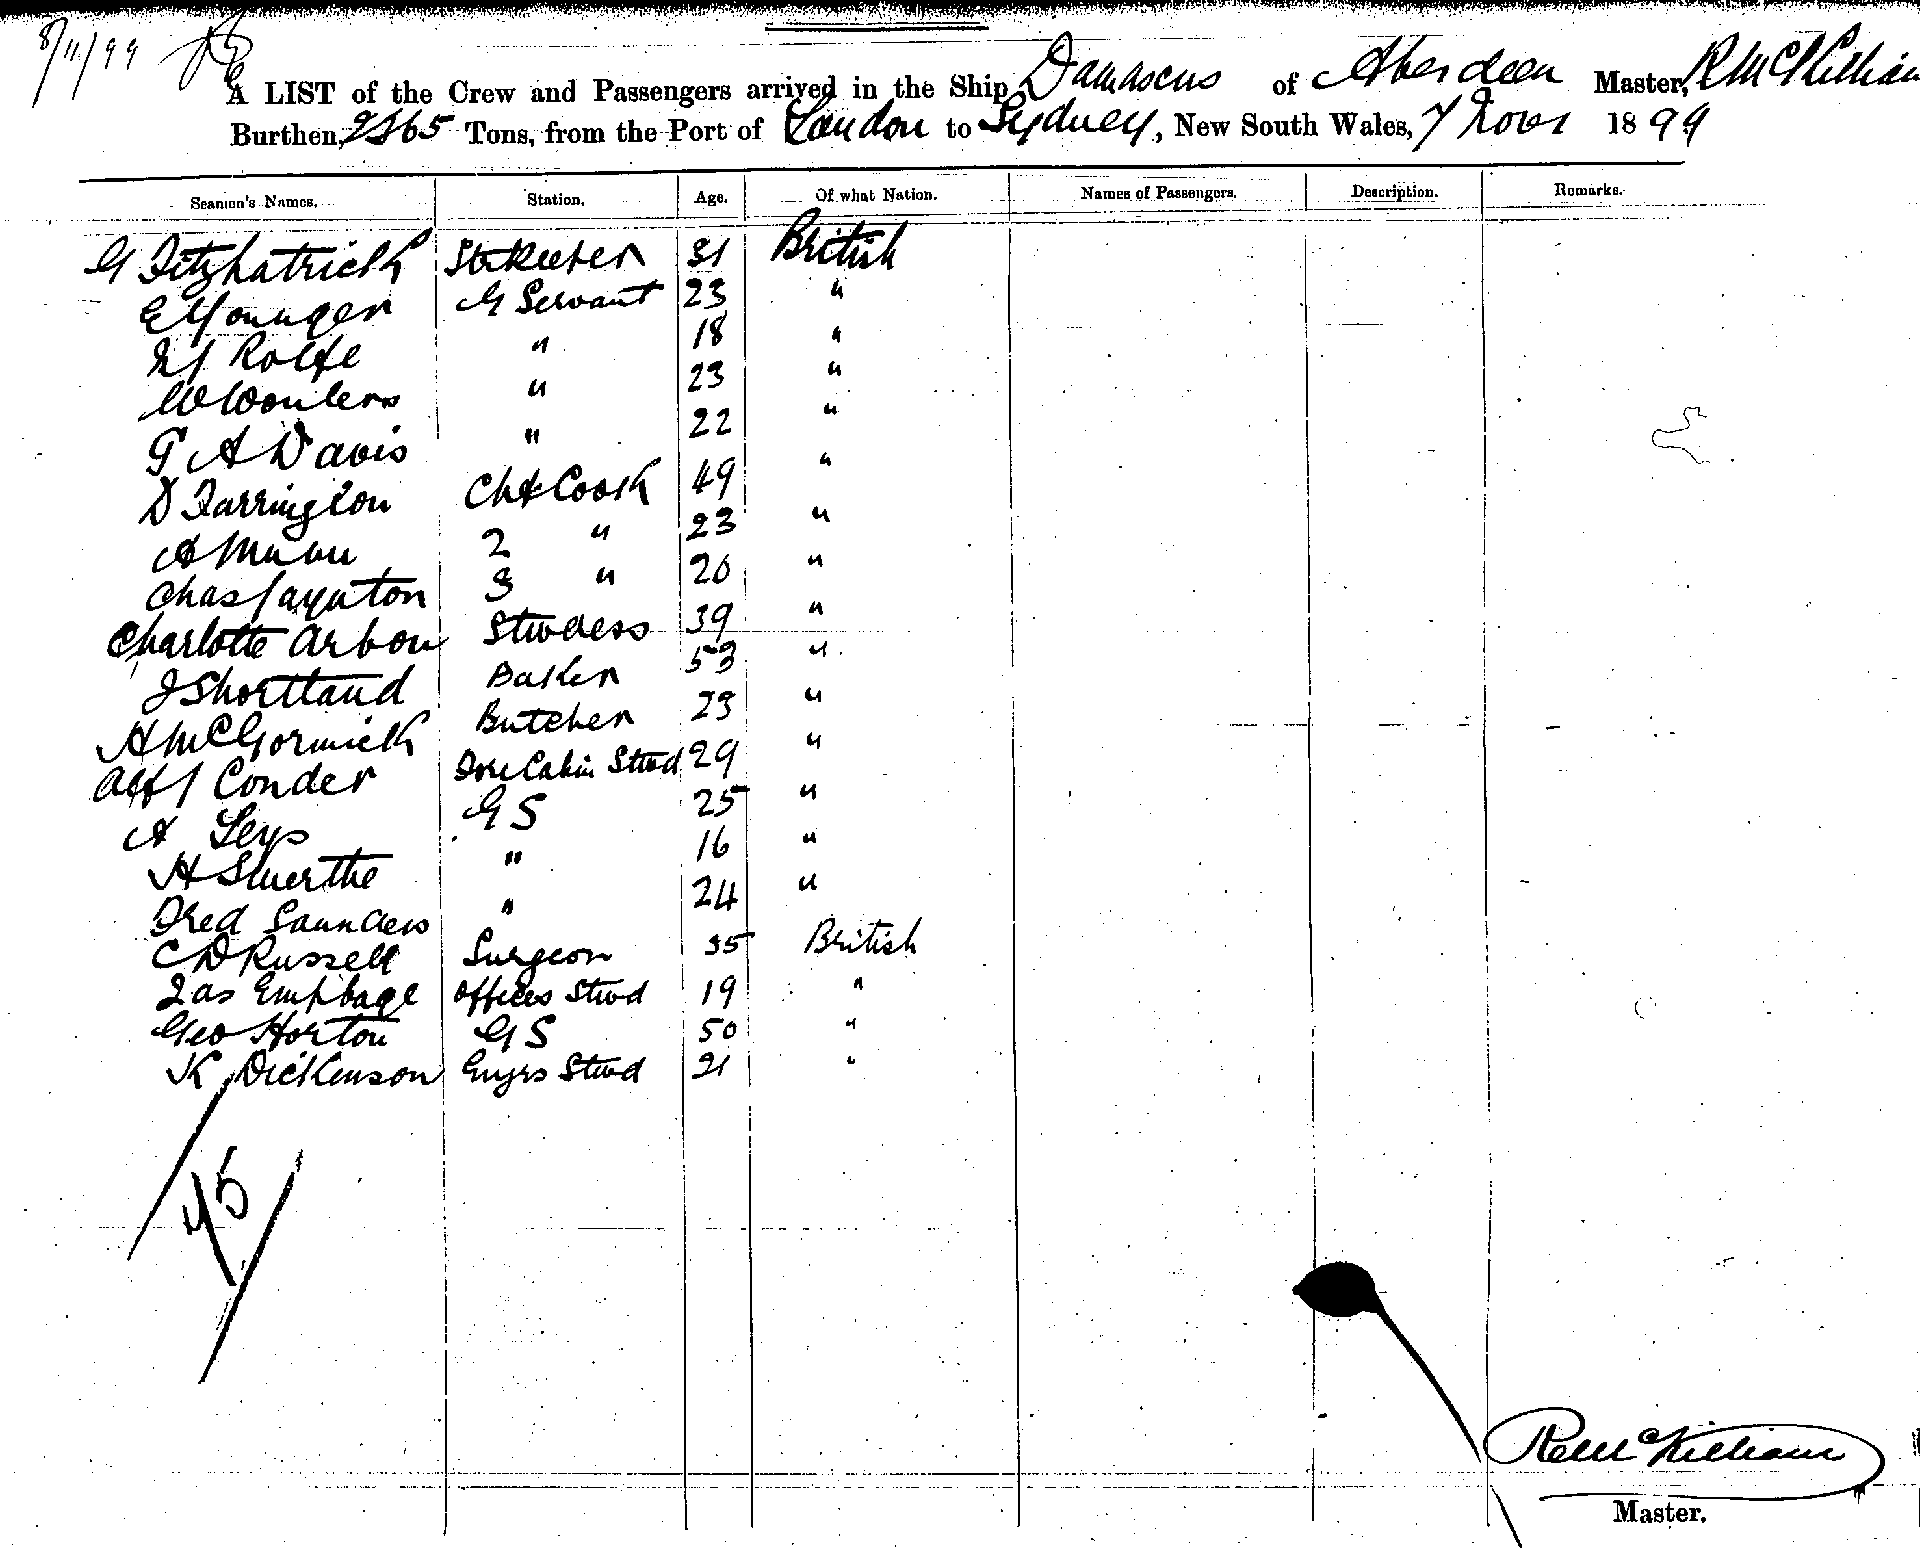 8/11/99
A LIST of the Crew and Passengers arrived in the Ship Damascus of Aberdeen Master, R McKilliam
Burthen, 2365 Tons, from the Port of London to Sydney, New South Wales, 7 Novr 1899
Seamen's Names. Station. Age. Of what Nation. Names of Passengers. Description. Remarks.
G Fitzpatrick Strkeeper 31 British
E Younger G Servant 23 "
Rolfe " 18 "
W " 23 "
G A Davis " 22 "
D Farrington Chf Cook 49 "
A Munn 2 " 23 "
Chas Jaynton 3 " 20 "
Charlotte Arbon Stwdess 39 "
J Shortland Baker 53 "
A McCormick Butcher 23 "
Alf J Conder Fore Cabin Stwd 29 "
A Leys G S 25 "
H Smerthe " 16 "
Fred Saunders " 24 "
C D Russell Surgeon 35 British
Jas Empbage Officers Stwd 19 "
Geo Horton G S 50 "
K Dickenson Engrs Stwd 21 "
45
R McKilliam
Master.